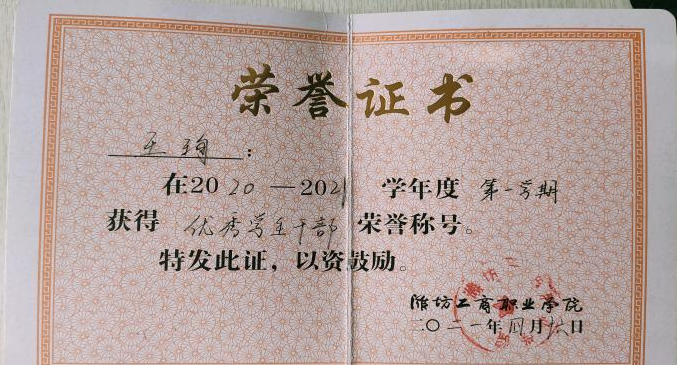 荣誉证书
王珣：
在2020—2021学年度第一学期
获得优秀学生干部荣誉称号。
特发此证，以资鼓励。
潍坊工商职业学院
二〇二一年四月 日